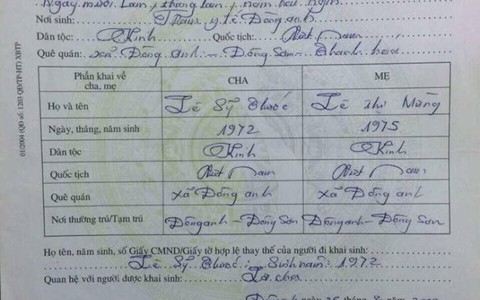 Ngày mười lăm, tháng tám, năm hai nghìn
Nơi sinh: Trạm y tế Đông anh
Dân tộc: Kinh Quốc tịch: Việt Nam
Quê quán: xã Đông anh - Đông Sơn - Thanh hóa
Phần khai về cha, mẹ CHA MẸ
Họ và tên Lê Sỹ Lê thị
Ngày, tháng, năm sinh 1972 1975
Dân tộc Kinh Kinh
Quốc tịch Việt Nam Việt Nam
Quê quán Xã Đông anh xã Đông anh
Nơi thường trú/Tạm trú Đông anh - Đông Sơn Đông anh - Đông Sơn
Họ tên, năm sinh, số Giấy CMND/Giấy tờ hợp lệ thay thế của người đi khai sinh:
Lê Sỹ : Sinh năm: 1972
Quan hệ với người được khai sinh: Là cha
01/2004 (QĐ số: 1203 QĐ/TP-HT) XBTP